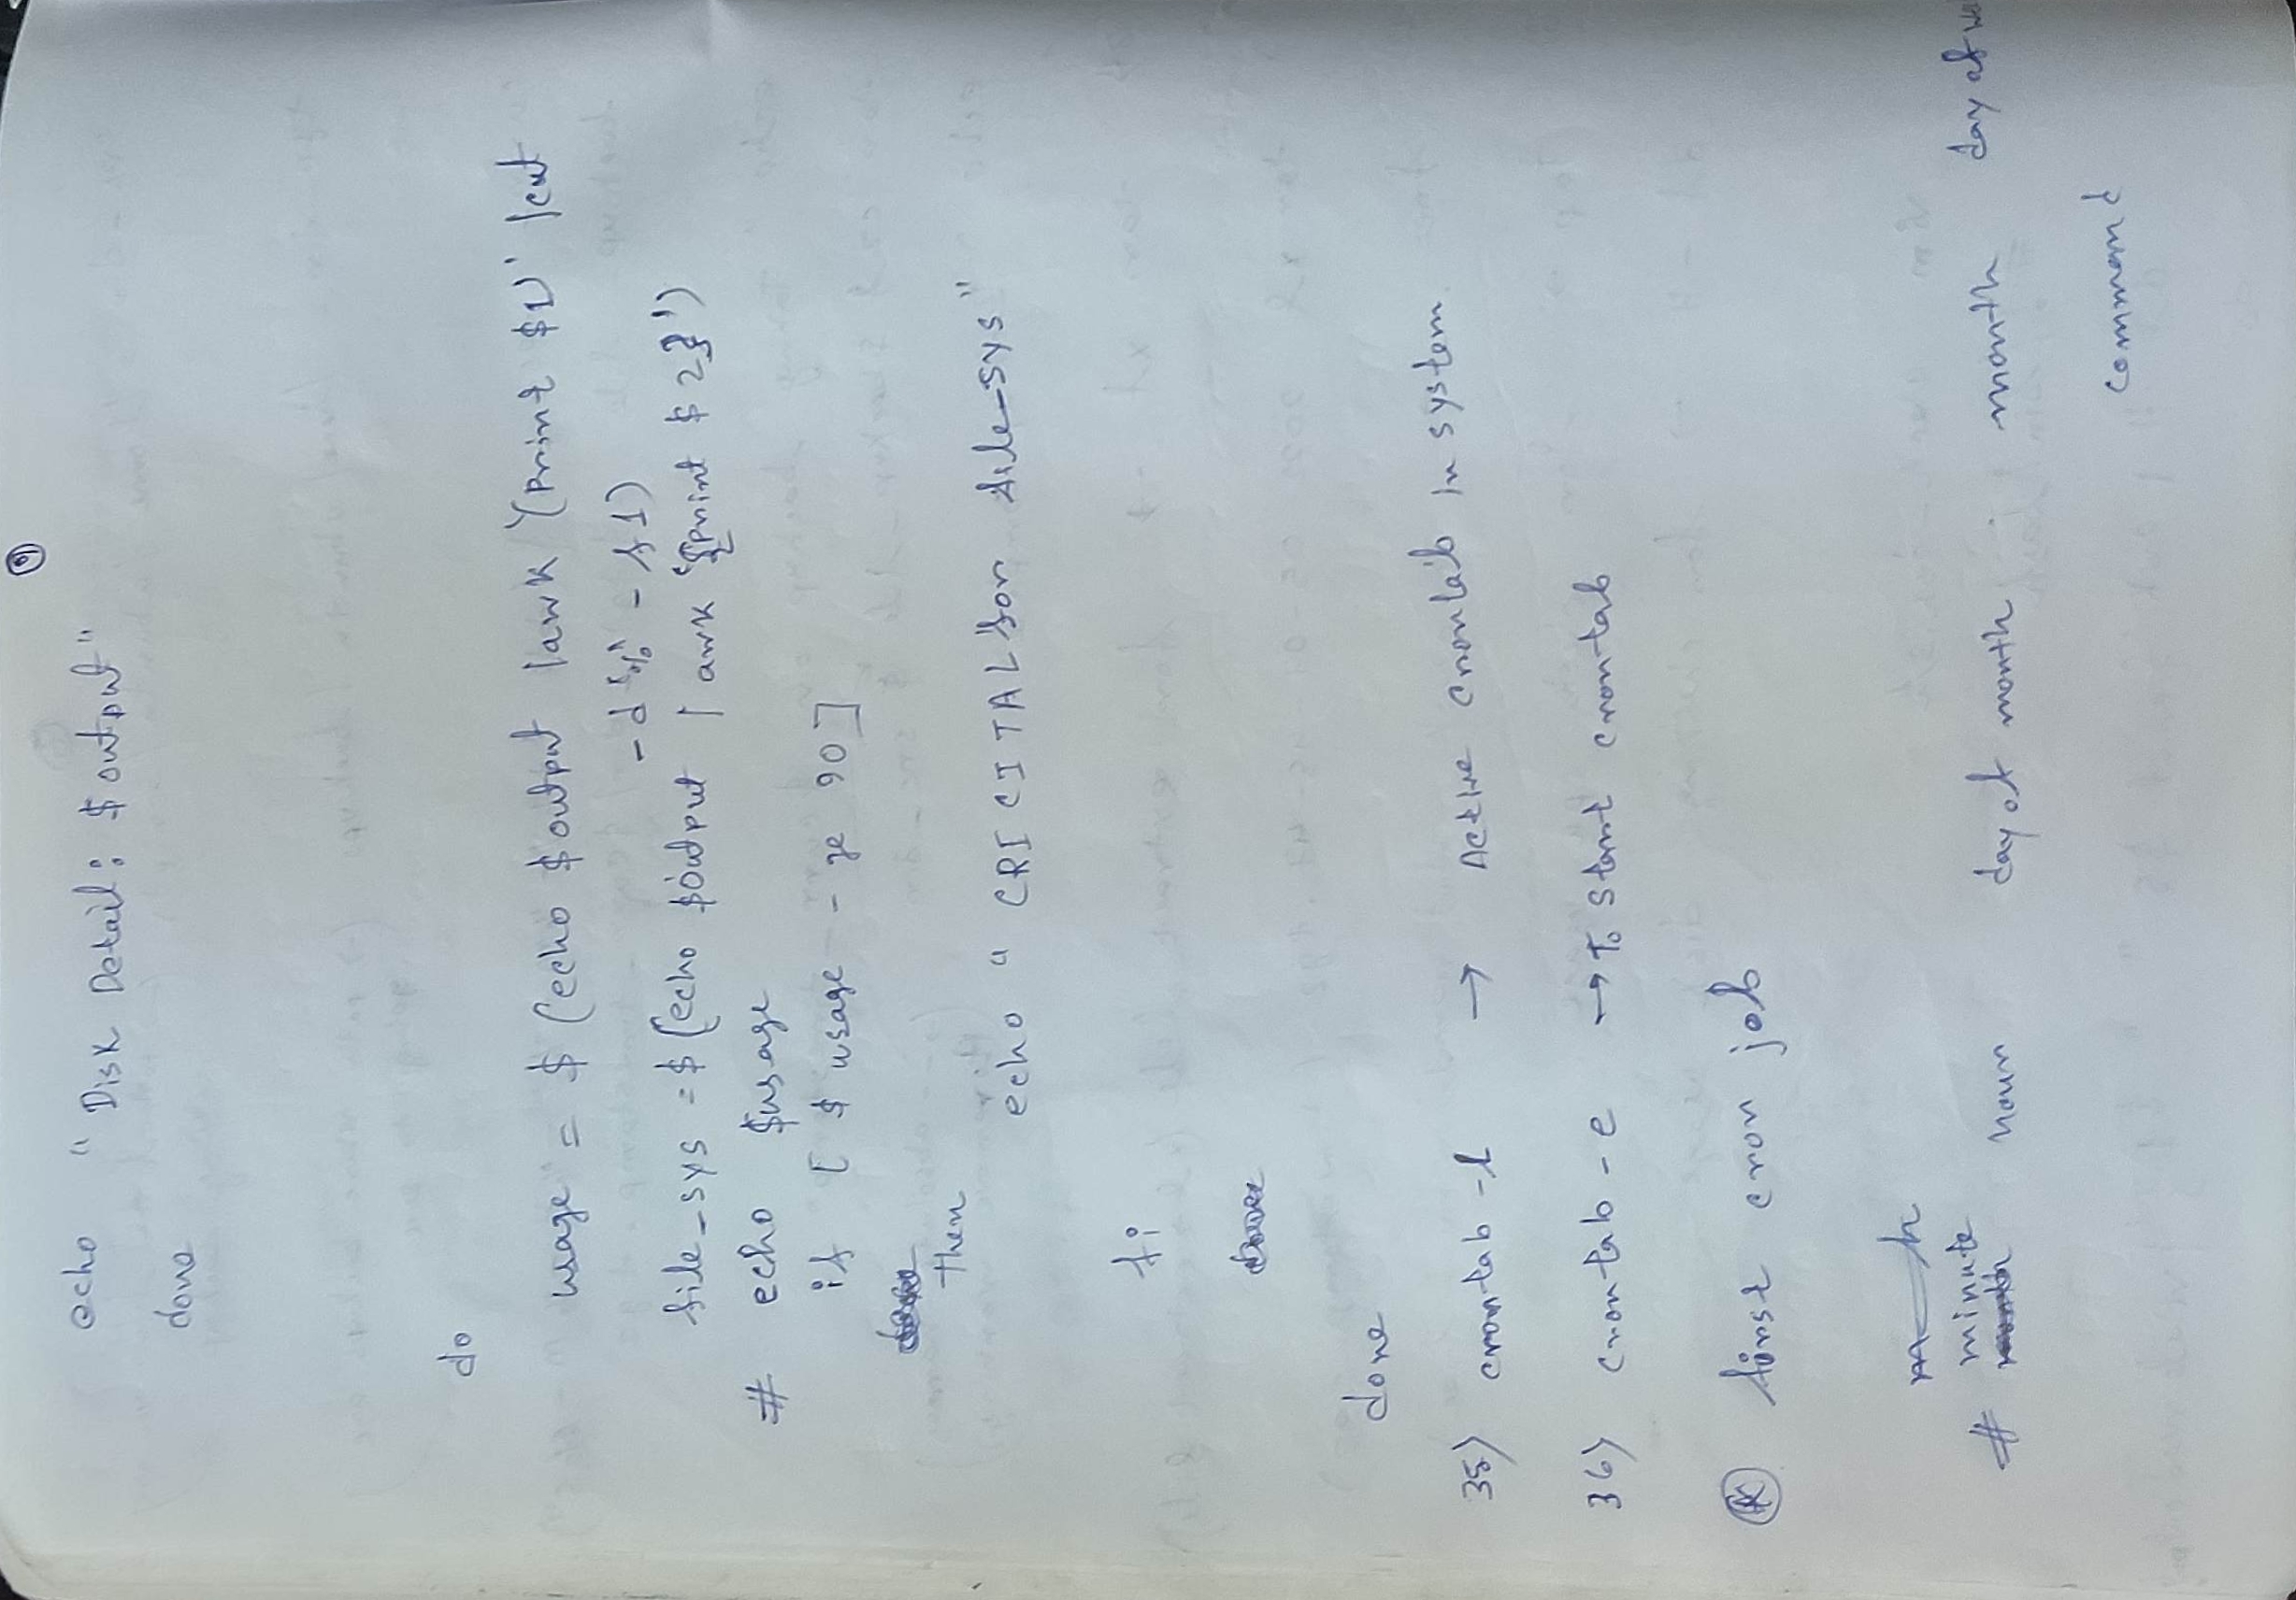 9
echo " Disk Detail: $output"
done
do
usage = $ (echo $output |awk '(Print $1)' |cut
-d '%' - f1)
file_sys = $ (echo $output | awk '{print $2}')
# echo $usage
if [ $ usage - ge 90 ]
then
echo " CRICITAL for file_sys "
fi
done
35) crontab -l → Active crontab in system
36) crontab - e → To start crontab
first cron job
m h
minute
# hour day of month month day of we
command